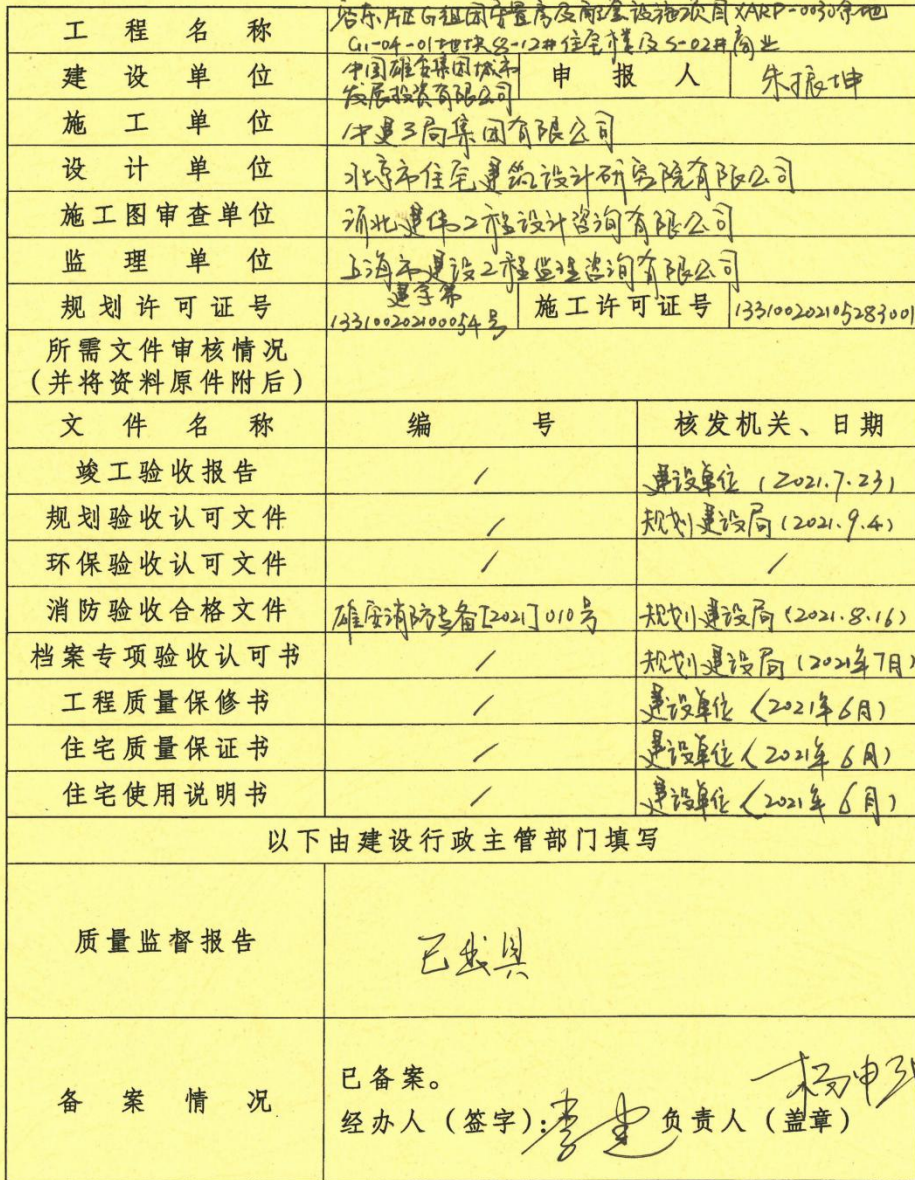 工程名称 容东片区G组团安置房及配套设施项目XARP-0030宗地
G1-04-01地块8-12#住宅楼及S-02#商业
建设单位 中国雄安集团城市
发展投资有限公司 申报人 朱振坤
施工单位 中建三局集团有限公司
设计单位 北京市住宅建筑设计研究院有限公司
施工图审查单位 河北建伟工程设计咨询有限公司
监理单位 上海市建设工程监理咨询有限公司
规划许可证号 建字第
133100202100054号 施工许可证号 133100202105283001
所需文件审核情况
(并将资料原件附后)
文件名称 编号 核发机关、日期
竣工验收报告 / 建设单位(2021.7.23)
规划验收认可文件 / 规划建设局(2021.9.4)
环保验收认可文件 / /
消防验收合格文件 雄安消防专备[2021]010号 规划建设局(2021.8.16)
档案专项验收认可书 / 规划建设局(2021年7月)
工程质量保修书 / 建设单位(2021年6月)
住宅质量保证书 / 建设单位(2021年6月)
住宅使用说明书 / 建设单位(2021年6月)
以下由建设行政主管部门填写
质量监督报告 已出具
备案情况 已备案。
经办人(签字): 负责人(盖章)